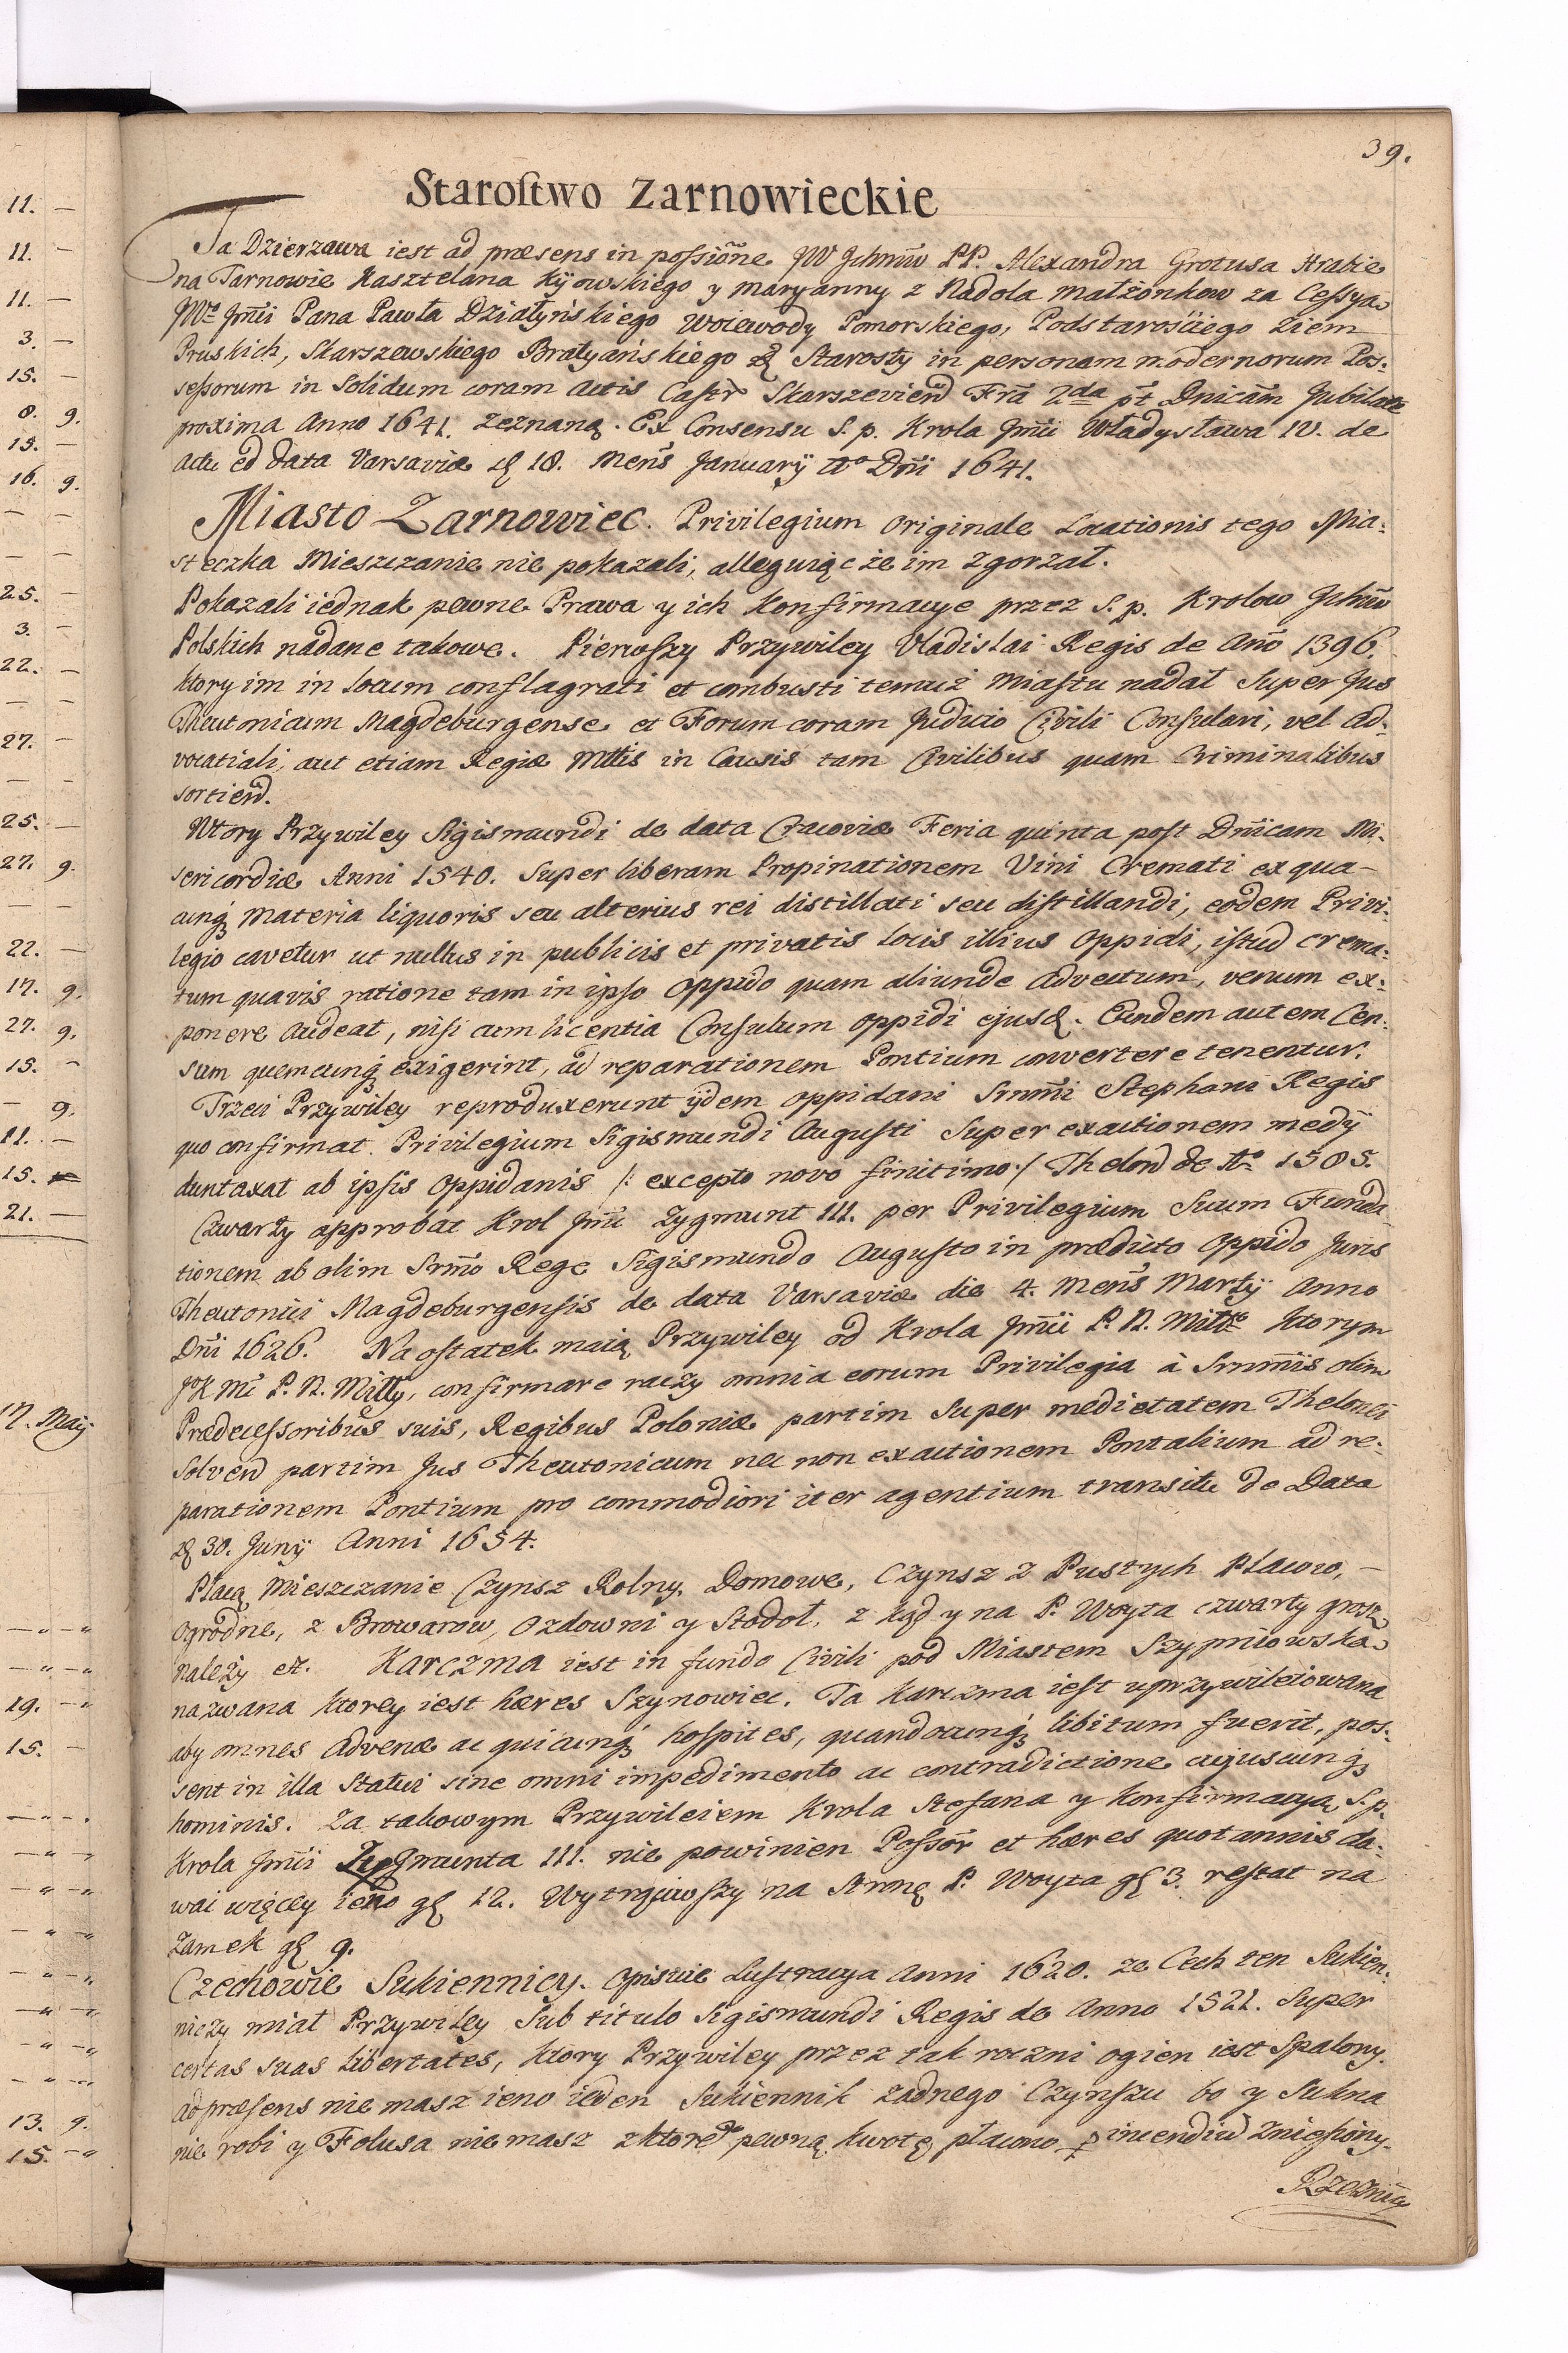 39.
Starostwo Zarnowieckie
Ta Dzierzawa iest ad præsens in possiõne JW Jchmw PP. Alexandra Grotusa Hrabie
na Tarnowie Kasztelana Kijowskiego y Maryanny z Nadola Małżonkow za Cessyą
JMci Pana Pawła Działyńskiego Woiewody Pomorskiego, Podstarościego Ziem
Pruskich, Skarszewskiego Bratyańskiego Starosty in personam modernorum Pos:
sessorum in Solidum coram Actis Castr Skarszevien Fra 2da pt Dnicam Jubilate
proxima Anno 1641. zeznaną. Ex Consensu S. p. Krola Jmci Władysława IV. de
actu ed data Varsaviæ 18. Mens January Ao Dni 1641.
Miasto Zarnowiec. Privilegium originale Locationis tego Mia:
steczka Mieszczanie nie pokazali, alleguiąc że im zgorzał.
Pokazali iednak pewne Prawa y ich Konfirmacye przez S. p. Krolow Jchmw
Polskich nadane takowe. Pierwszy Przywiley Vladislai Regis de Ano 1396.
ktory im in locum conflagrati et combusti temuż Miastu nadał Super Jus
Theutonicum Magdeburgense et Forum coram Judicio Civili Consulari, vel Ad:
vocatiali, aut etiam Regiæ Mttis in Causis tam Civilibus quam Criminalibus
sortiend.
Wtory Przywiley Sigismundi de data Cracoviæ Feria quinta post Dnicam Mi:
sericordiæ Anni 1540. Super liberam Propinationem Vini Cremati ex qua-
cunq materia liquoris seu alterius rei distillati seu distillandi, eodem Privi:
legio cavetur ut nullus in publicis et privatis locis illius Oppidi, istud crema:
tum quavis ratione tam in ipso Oppido quam aliunde advectum, venum ex:
ponere audeat, nisi cum licentia Consulum oppidi ejusd. Eundem autem Cen:
sum quemcunq exigerint, ad reparationem Pontium convertere tenentur.
Trzeci Przywiley reproduxerunt ijdem oppidani Srnmi Stephani Regis
quo confirmat Privilegium Sigismundi Augusti Super exactionem medij
duntaxat ab ipsis Oppidanis /: excepto novo finitimo :/ Thelon de Ao 1585.
Czwarty approbat Krol Jmc Zygmunt III. per Privilegium Suum Funda
tionem ab olim Srmo Rege Sigismundo Augusto in prædicto Oppido Juris
Theutonici Magdeburgensis de data Varsaviæ die 4. Mens Martij Anno
Dni 1626. Na ostatek maią Przywiley od Krola Jmci P. N. Miłłgo ktorym
JK Mc P. N. Miłły, confirmare raczy omnia eorum Privilegia à Srnmis olim
Prædecessoribus suis, Regibus Poloniæ partim Super medietatem Thelonei
Solvend partim Jus Theutonicum nec non exactionem Pontalium ad re:
parationem Pontium pro commodiori iter agentium transitu de Data
30. Junij Anni 1654.
Płacą Mieszczanie Czynsz Rolny, Domowe, Czynsz z Pustych Placow, -
ogrodne, z Browarow, Ozdowni y Stodoł, z kąd y na P. Woyta czwarty grosz
należy et. Karczma iest in fundo Civili pod Miastem Szypniowska
nazwana ktorey iest hæres Szynowiec. Ta Karczma iest uprzywileiowana
aby omnes Advenæ ac quicunq hospites, quandocunq libitum fuerit, pos:
sent in illa Statui sine omni impedimento ac contradictione cujuscunq
hominis. Za takowym Przywileiem Krola Stefana y Konfirmacyą S.p.
Krola Jmci Zygmunta III. nie powinien Possor et hæres quotannis da:
wac więcey ieno g 12. Wytrąciwszy na Stronę P. Woyta g 3. restat na
Zamek g 9.
Czechowie Sukiennicy. Opisuie Lustracya Anni 1620. ze Cech ten Sukien:
niczy miał Przywiley Sub titulo Sigismundi Regis de Anno 1521. Super
certas suas Libertates, ktory Przywiley przez tak roczni ogien iest Spalony.
ad præsens nie masz ieno ieden Sukiennik żadnego Czynszu bo y Sukna
nie robi y Folusa nie masz z ktorego pewną kwotę płacono p incendiu zniesiony.
Rzeznicy
11. -
11. -
11. -
3. -
15. -
8. 9.
15. -
16. 9.
25. -
3. -
22. -
27. -
25. -
27. 9.
22. -
17. 9.
27. 9.
15. -
- 9.
11. -
15. -
21. -
17. Maij
19. -
15. -
13. 9.
15. -